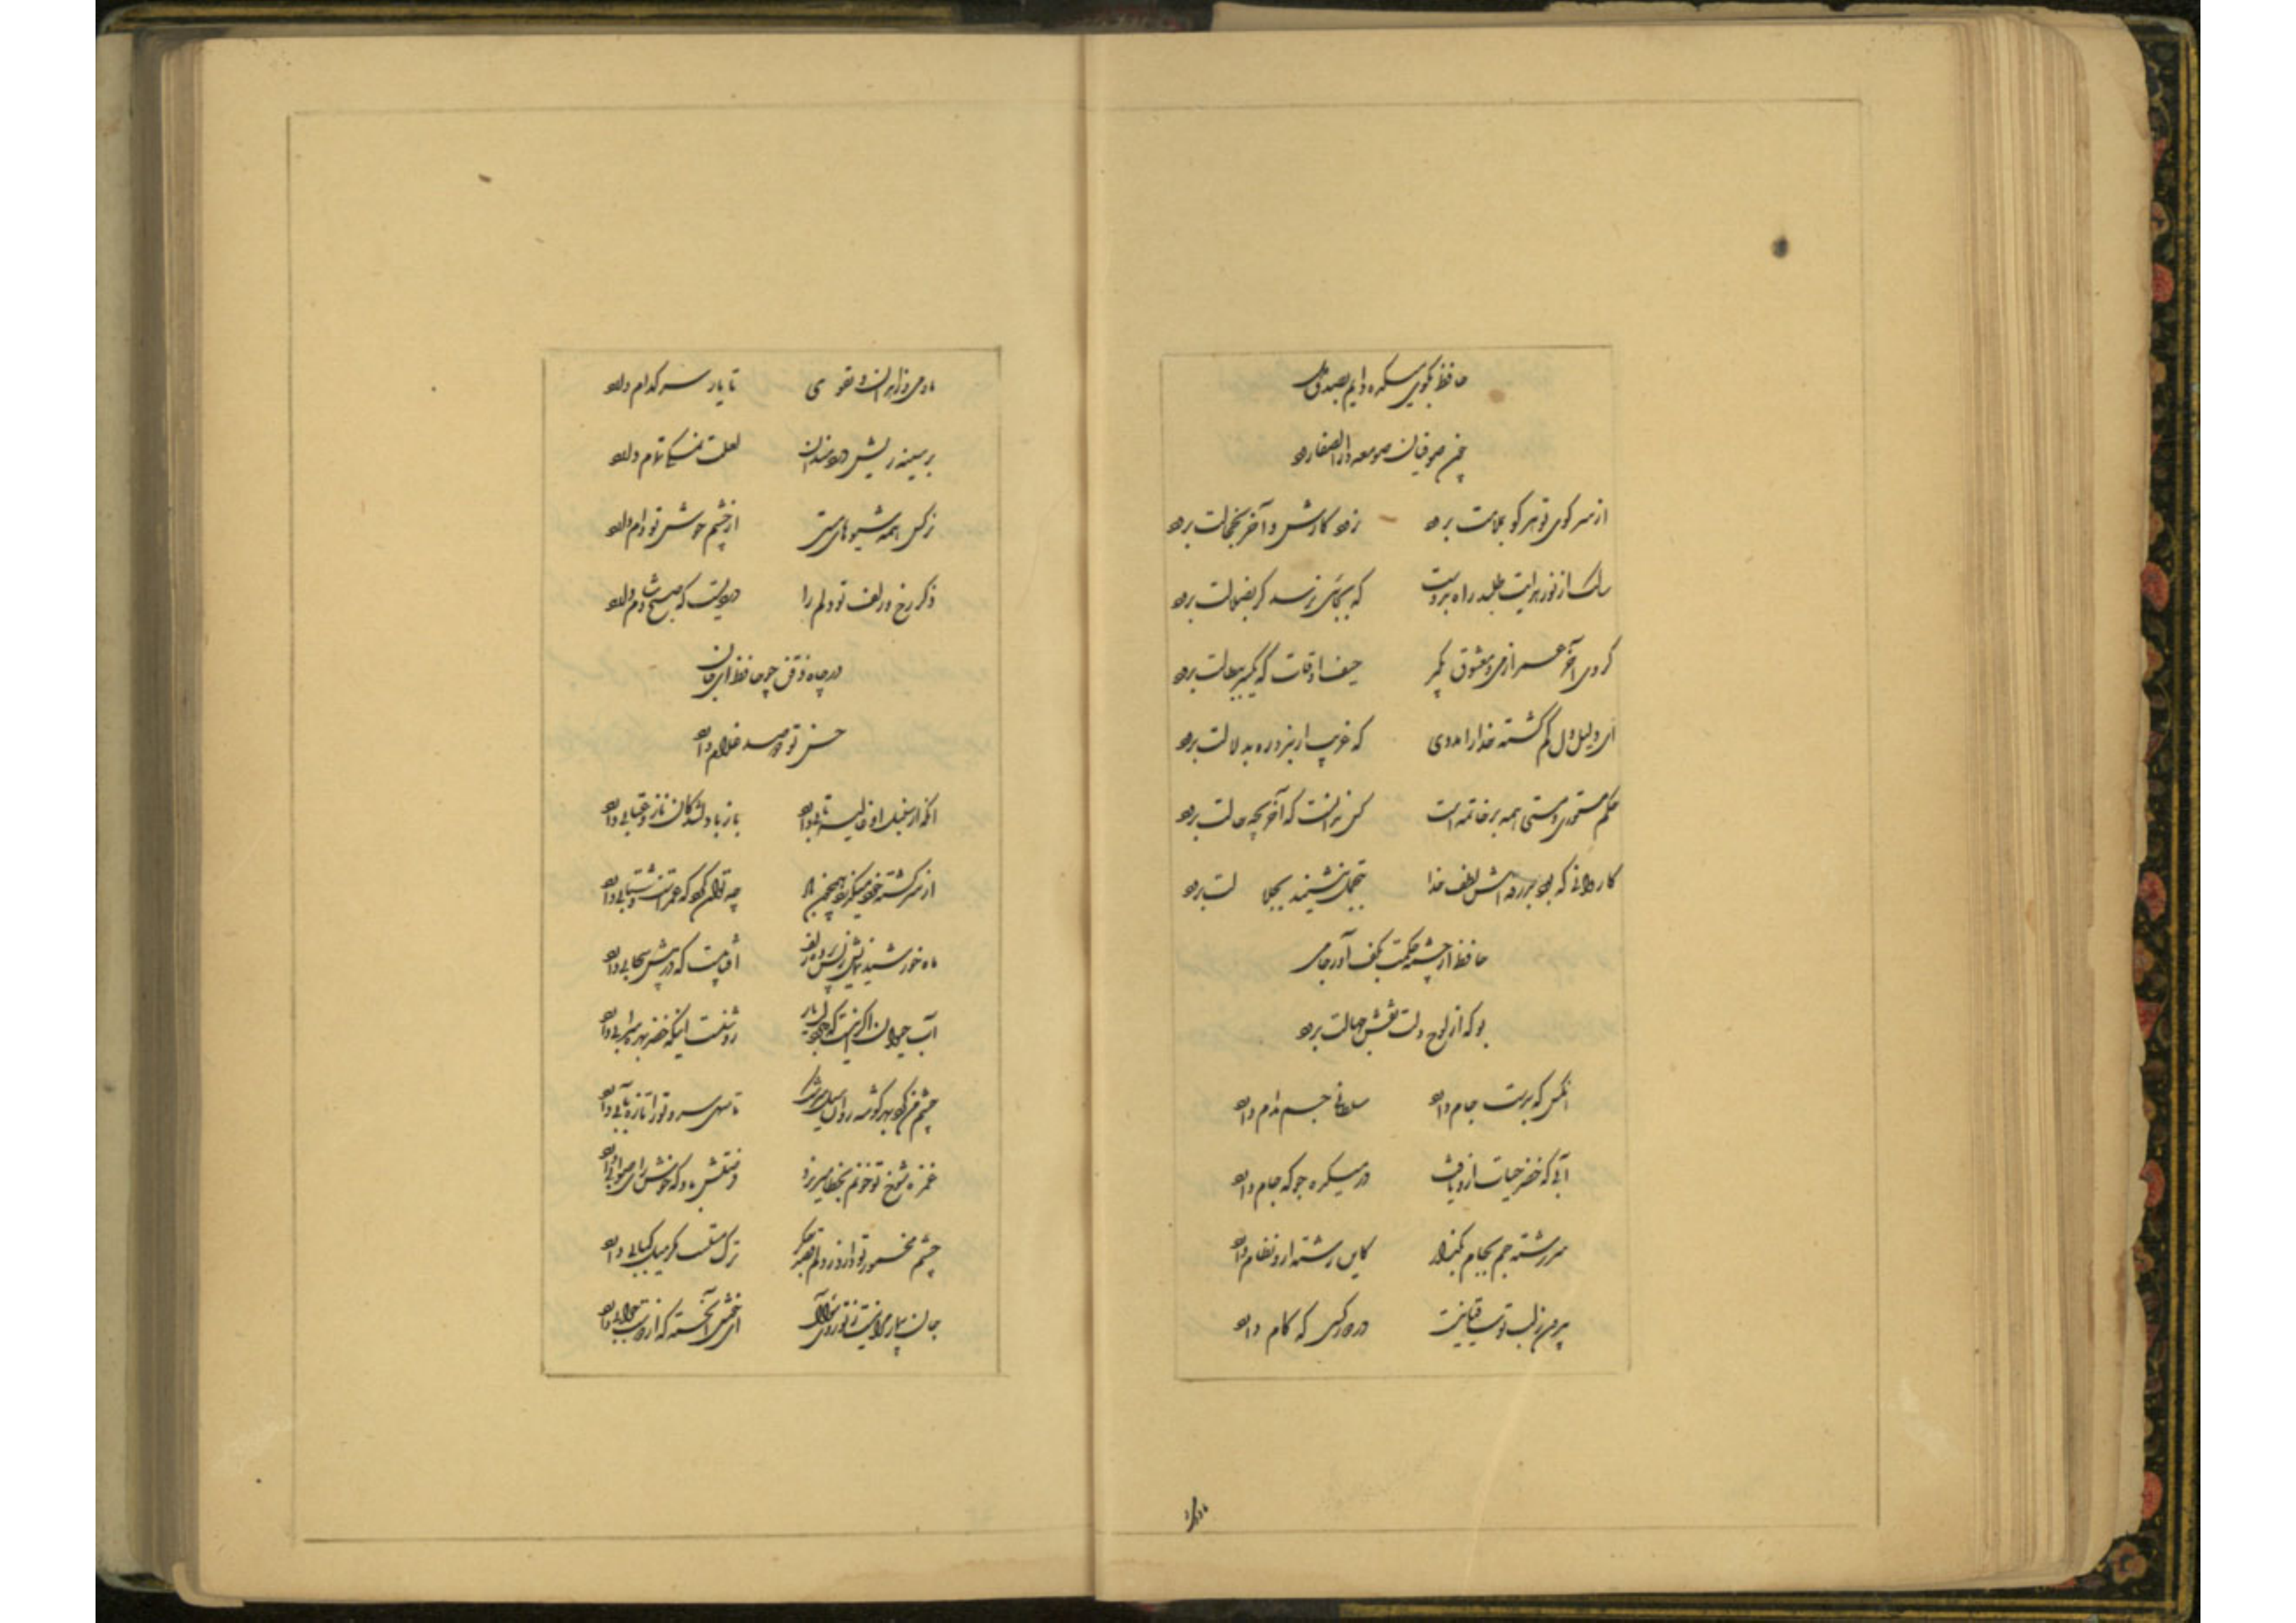 حافظ بکوی میکده دایم بصدق دل
چون صوفیان صومعه دار الصفا رود
از سر کوی تو هر کو بملامت برود نرود کارش و آخر بخجالت برود
سالک از نور هدایت طلبد راه بدوست که بجائی نرسد گر بضلالت برود
گروی آخر عمر از می و معشوق بگیر حیف اوقات که یکسر ببطالت برود
ای دلیل دل گم گشته خدا را مددی که غریب ار نبرد ره بدلالت برود
حکم مستوری و مستی همه بر خاتمه است کس ندانست که آخر بچه حالت برود
کاروانی که بود بدرقه اش لطف خدا بتجمل بنشیند بجلالت برود
حافظ از چشمه حکمت بکف آور جامی
بو که از لوح دلت نقش جهالت برود
آنکس که بدست جام دارد سلطانی جم مدام دارد
آبی که خضر حیات ازو یافت در میکده جو که جام دارد
سررشته جم بجام بگذار کاین رشته ازو نظام دارد
بیرون ز لب تو ساقیا نیست در دور کسی که کام دارد
ما و می و زاهدان و تقوی تا یار سر کدام دارد
بر سینه ریش دردمندان لعلت نمکی تمام دارد
نرگس همه شیوهای مستی از چشم خوشش تو وام دارد
ذکر رخ و زلف تو دلم را وردیست که صبح و شام دارد
در چاه ذقن چو حافظ ای جان
حسن تو دو صد غلام دارد
آنکه از سنبل او غالیه تابی دارد باز با دلشدگان ناز و عتابی دارد
از سر کشته خود میگذرد همچون باد چه توان کرد که عمرست و شتابی دارد
ماه خورشید نمایش ز پس پرده زلف آفتابیست که در پیش سحابی دارد
آب حیوان اگر اینست که دارد لب یار روشنست اینکه خضر بهره سرابی دارد
چشم من کرد بهر گوشه روان سیل سرشک تا سهی سرو ترا تازه بآبی دارد
غمزه شوخ تو خونم بخطا میریزد فرصتش باد که خوش رای صوابی دارد
چشم مخمور تو دارد ز دلم قصد جگر ترک مستست مگر میل کبابی دارد
جان بیمار مرا نیست ز تو روی سؤال ای خوش آن خسته که از دوست جوابی دارد